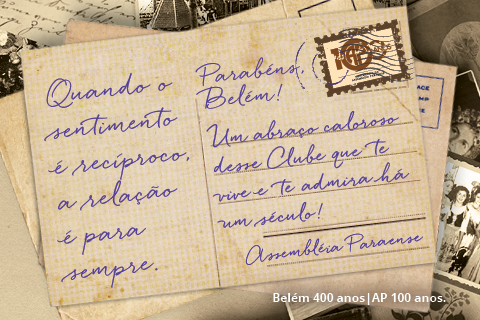 Quando o
sentimento
é recíproco,
a relação
é para
sempre.
Parabéns,
Belém!
Um abraço caloroso
desse Clube que te
vive e te admira há
um século!
Assembléia Paraense
Belém 400 anos|AP 100 anos.